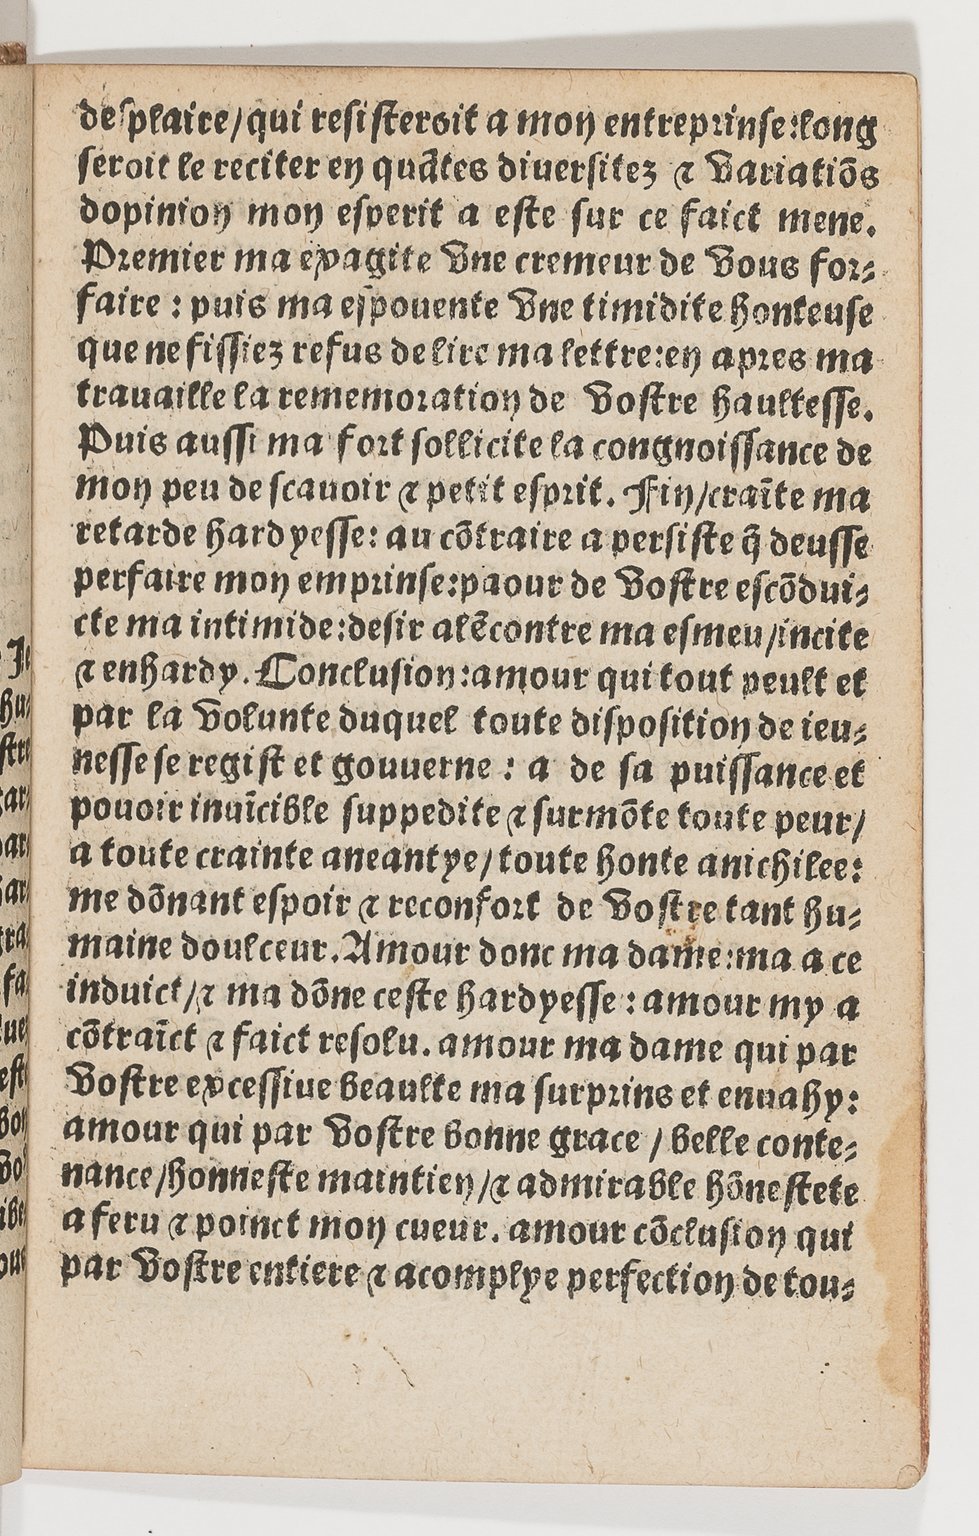 desplaire/qui resisteroit a mon entreprinse:long
seroit le reciter en quãtes diuersitez ⁊ variatiõs
dopinion mon esperit a este sur ce faict mene.
Premier ma exagite vne cremeur de vous for⸗
faire : puis ma espouente vne timidite honteuse
que ne fissiez refus de lire ma lettre:en apres ma
trauaille la rememoration de vostre haultesse.
Puis aussi ma fort sollicite la congnoissance de
mon peu de scauoir ⁊ petit esprit. Fin/craĩte ma
retarde hardyesse: au cõtraire a persiste q̃ deusse
perfaire mon emprinse:paour de vostre escõdui⸗
cte ma intimide:desir alẽcontre ma esmeu/incite
⁊ enhardy. Conclusion:amour qui tout peult et
par la volunte duquel toute disposition de ieu⸗
nesse se regist et gouuerne : a de sa puissance et
pouoir inuĩcible suppedite ⁊ surmõte toute peur/
a toute crainte aneantye/toute honte anichilee:
me dõnant espoir ⁊ reconfort de vostre tant hu⸗
maine doulceur. Amour donc ma dame:ma a ce
induict/⁊ ma dõne ceste hardyesse : amour my a
cõtraĩct ⁊ faict resolu. amour ma dame qui par
vostre excessiue beaulte ma surprins et enuahy:
amour qui par vostre bonne grace / belle conte⸗
nance/honneste maintien/⁊ admirable hõnestete
a feru ⁊ poinct mon cueur. amour cõclusion qui
par vostre entiere ⁊ acomplye perfection de tou⸗